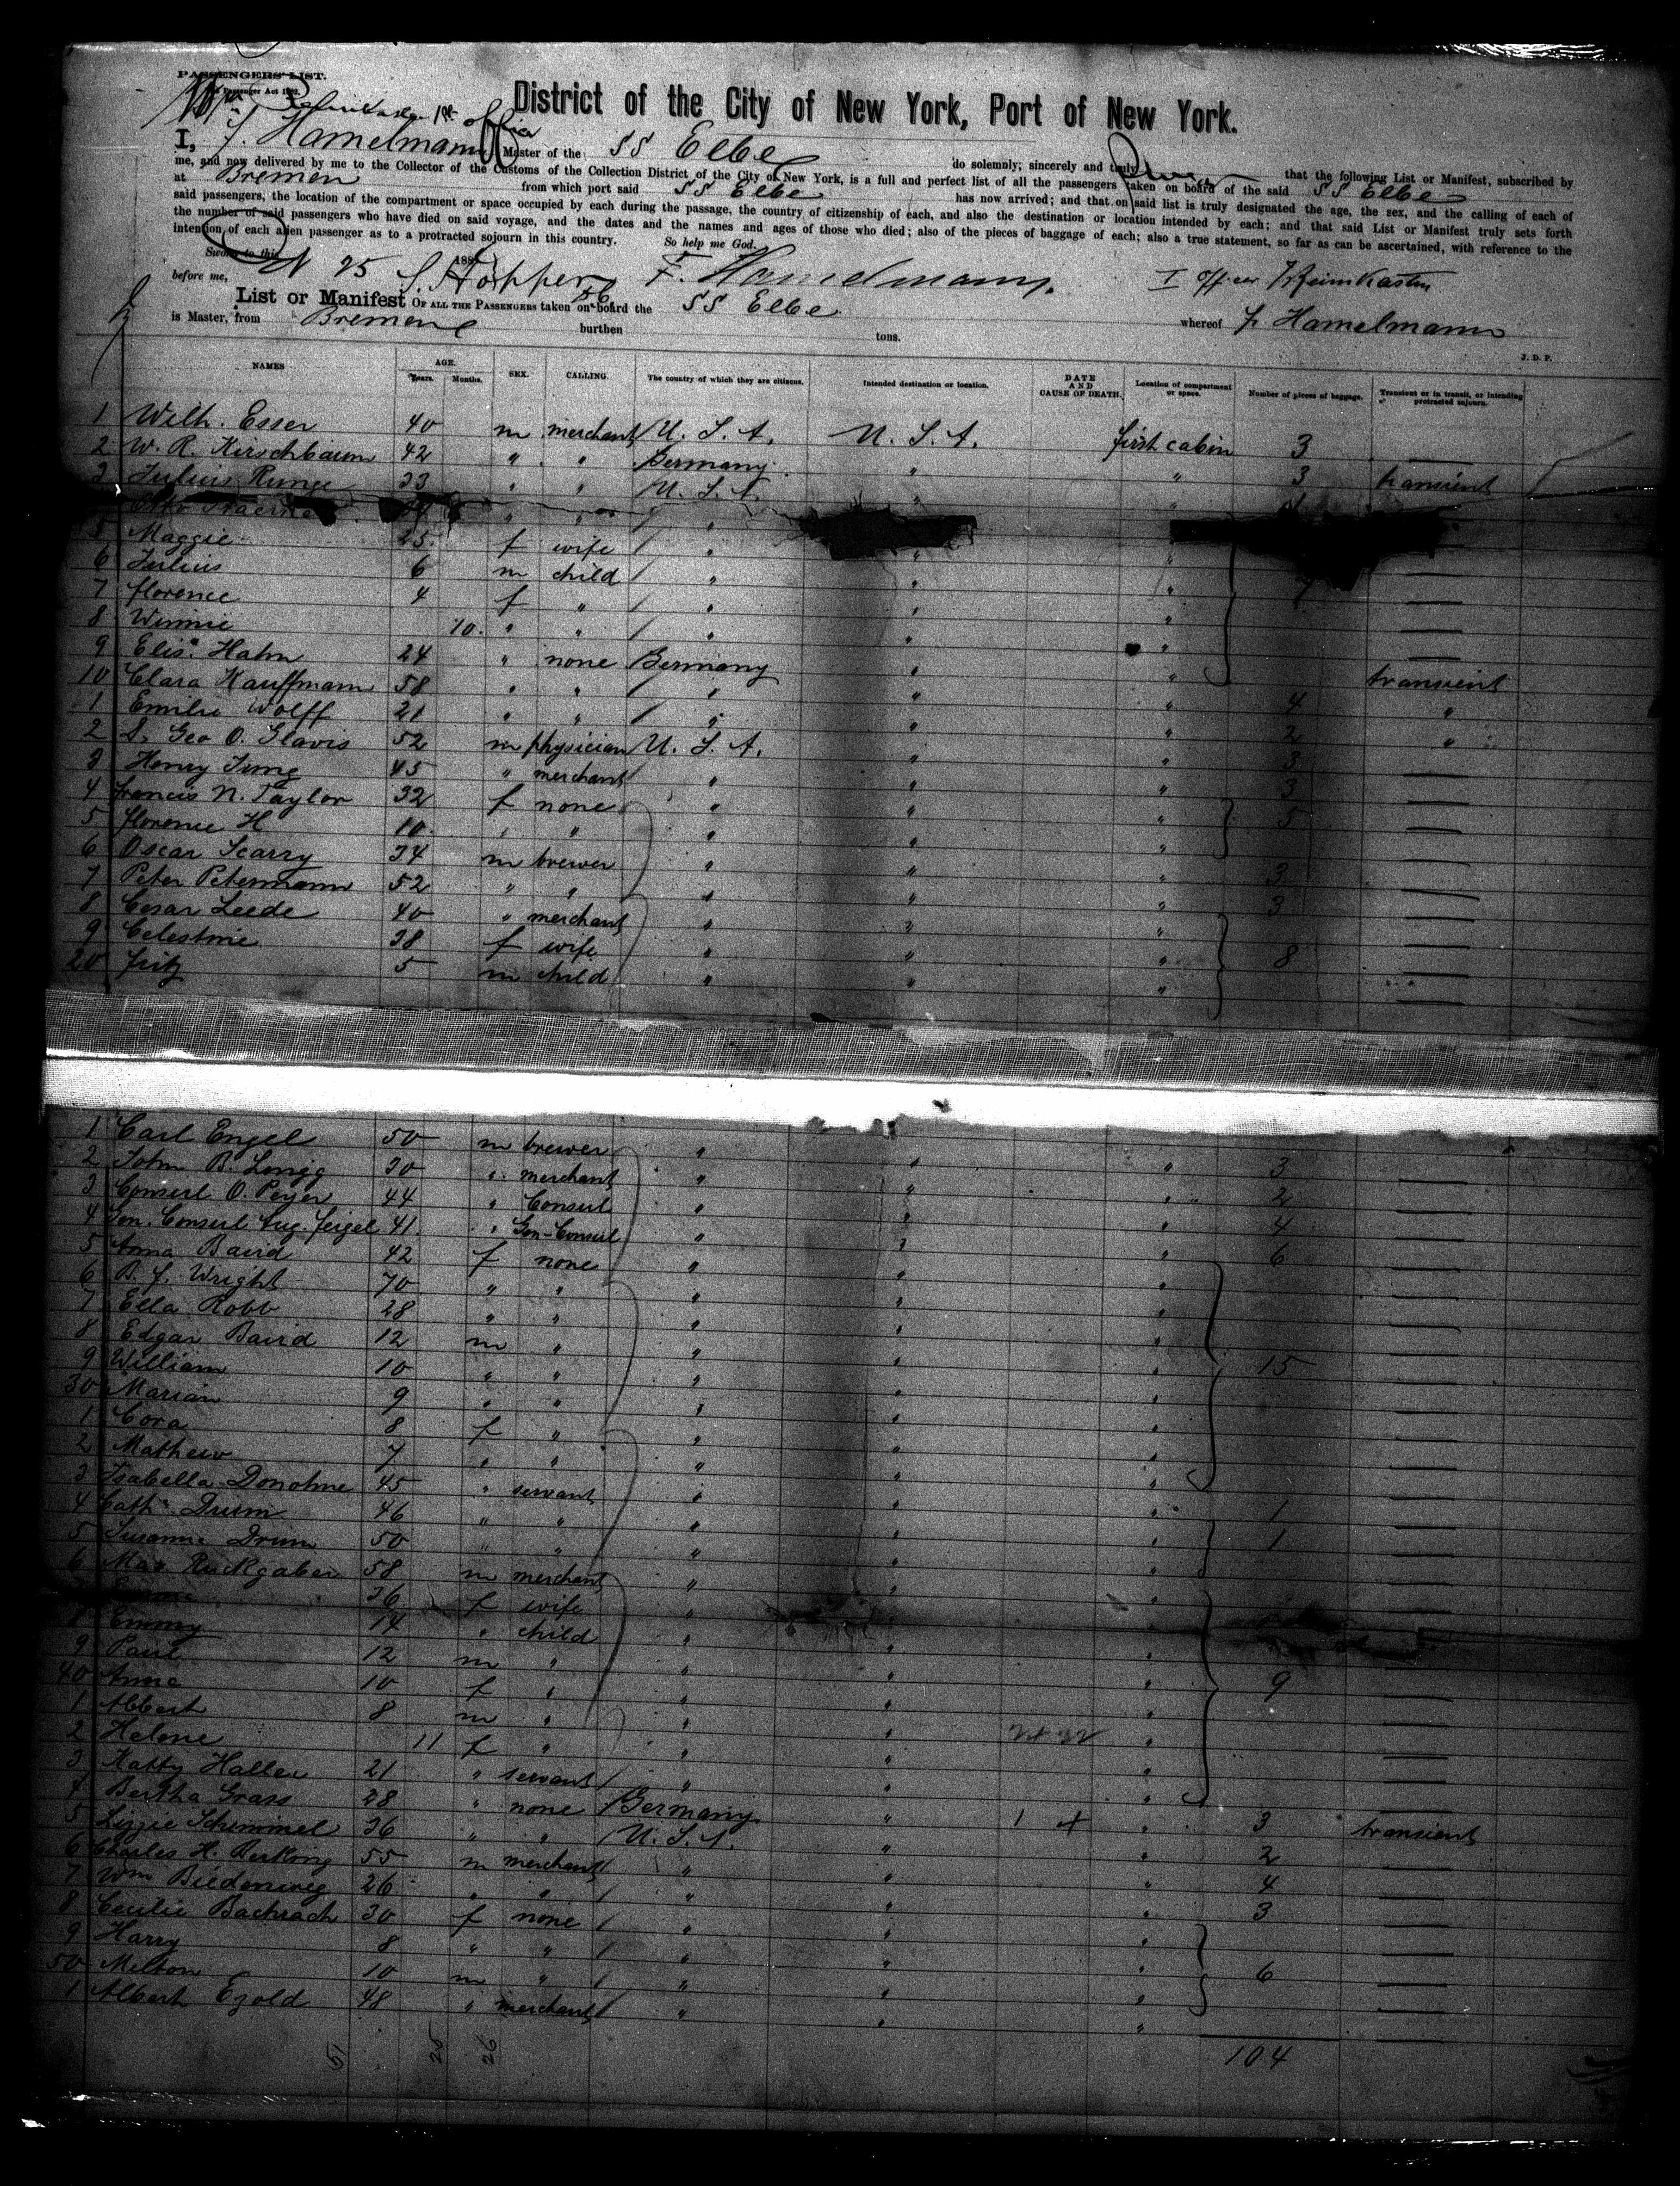 PASSENGERS' LIST.
Passenger Act 1882.
District of the City of New York, Port of New York.
1st officer
I, F. Hamelmann Master of the SS Elbe do solemnly, sincerely and truly that the following List or Manifest, subscribed by
me, and now delivered by me to the Collector of the Customs of the Collection District of the City of New York, is a full and perfect list of all the passengers taken on board of the said SS Elbe
at Bremen from which port said SS Elbe has now arrived; and that on said list is truly designated the age, the sex, and the calling of each of
said passengers, the location of the compartment or space occupied by each during the passage, the country of citizenship of each, and also the destination or location intended by each; and that said List or Manifest truly sets forth
the number of said passengers who have died on said voyage, and the dates and the names and ages of those who died; also of the pieces of baggage of each; also a true statement, so far as can be ascertained, with reference to the
intention of each alien passenger as to a protracted sojourn in this country. So help me God.
Sworn to this 25 188
before me, S. Hopper F. Hamelmann. I officer
List or Manifest OF ALL THE PASSENGERS taken on board the SS Elbe whereof F. Hamelmann
is Master, from Bremen burthen tons.
J. D. P.
NAMES AGE. Years. Months. SEX. CALLING. The country of which they are citizens. Intended destination or location. DATE AND CAUSE OF DEATH. Location of compartment or space. Number of pieces of baggage. Transient or in transit, or intending protracted sojourn.
1 Wilh. Esser 40 m merchant U. S. A. U. S. A. first cabin 3 —
2 W. R. Kirschbaum 42 " " Germany " " 3 transient
3 Julius Runge 33 " " U. S. A. "
Otto " " " "
5 Maggie 25 f wife " " " —
6 Julius 6 m child " " " 7 —
7 Florence 4 f " " " " —
8 Winnie 10. " " " " " —
9 Elis. Hahn 24 " none Germany " " transient
10 Clara Kauffmann 58 " " " " " 4 "
1 Emilie Wolff 21 " " " " " 2 "
2 Geo O. Glavis 52 m physician U. S. A. " " 3 —
3 Henry Jung 45 " merchant " " " 3 —
4 Francis N. Taylor 32 f none " " " 5 —
5 Florence H 10 " " " " " —
6 Oscar Scarry 34 m brewer " " " 3 —
7 Peter Petermann 52 " " " " " 3 —
8 Cesar Leede 40 " merchant " " " —
9 Celestine 38 f wife " " " 8 —
20 Fritz 5 m child " " " —
1 Carl Engel 50 m brewer " " " 3 —
2 John B. Longg 30 " merchant " " " 2 —
3 Consul O. Peyer 44 " Consul " " " 4 —
4 Gen. Consul Aug. Feigel 41 " Gen-Consul " " " 6 —
5 Anna Baird 42 f none " " " —
6 B. F. Wright 70 " " " " " —
7 Ella Robb 28 " " " " " —
8 Edgar Baird 12 m " " " " 15 —
9 William 10 " " " " " —
30 Marian 9 " " " " " —
1 Cora 8 f " " " " —
2 Mathew 7 " " " " " —
3 Isabella Donohue 45 " servant " " " 1 —
4 Cath. Drum 46 " " " " " 1 —
5 Susanna Drum 50 " " " " " —
6 Max Ruckgaber 58 m merchant " " " —
36 f wife " " " —
8 Emmy 14 " child " " " —
9 Paul 12 m " " " " 9 —
40 Anna 10 f " " " " —
1 Albert 8 m " " " " —
2 Helene 11 f " " " " —
3 Katty Haller 21 " servant " " " —
4 Bertha Grass 28 " none Germany " " 3 transient
5 Lizzie Schimmel 36 " " U. S. A. " " 2 —
6 Charles H. 55 m merchant " " " 4 —
7 Wm Biedenweg 26 " " " " " 3 —
8 Cecilie Bachrach 30 f none " " " —
9 Harry 8 " " " " " 6 —
50 Milton 10 m " " " " —
1 Albert Ezold 48 " merchant " " " —
51 25 26 104